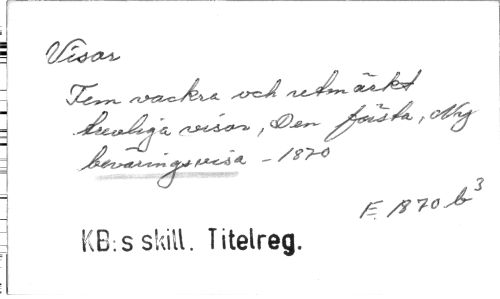 Visor
Fem vackra och utmärkt
trevliga visor, Den första, Ny
beväringsvisa – 1870
E. 1870 b3
KB:s skill. Titelreg.